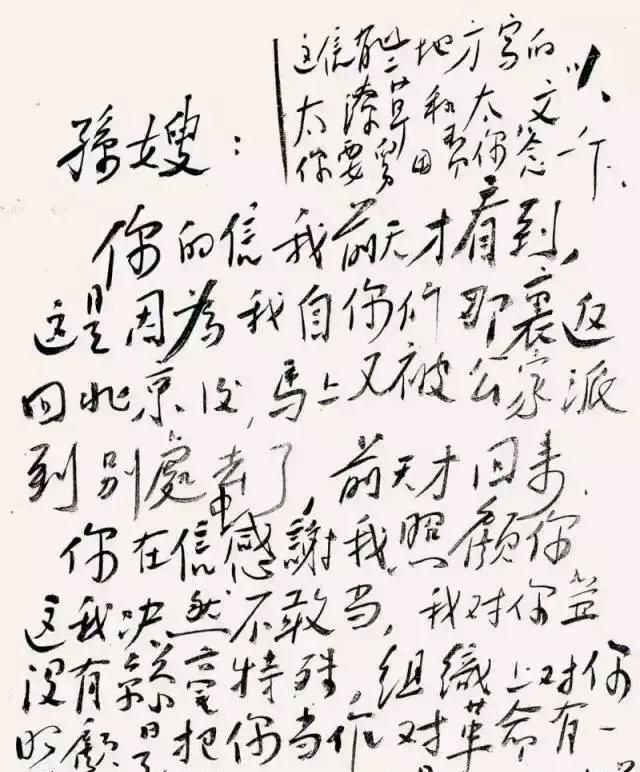 这信有些地方写的
太潦草和太文
你要 你念一下.
孫嫂:
你的信我前天才看到,
这是因為我自你们那裏返
回北京后,馬上又被公家派
到别處去了,前天才回来.
你在信中感謝我照顧你
这我决然不敢当,我对你並
没有 特殊,组織上对你
照顧是把你当作对革命有一